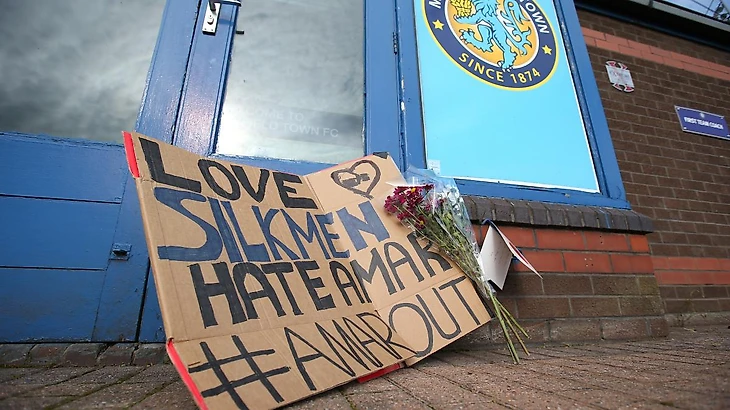 TOWN
SINCE 1874
TOWN FC
FIRST TEAM COACH
LOVE
SILKMEN
HATE AMAR
#AMAROUT